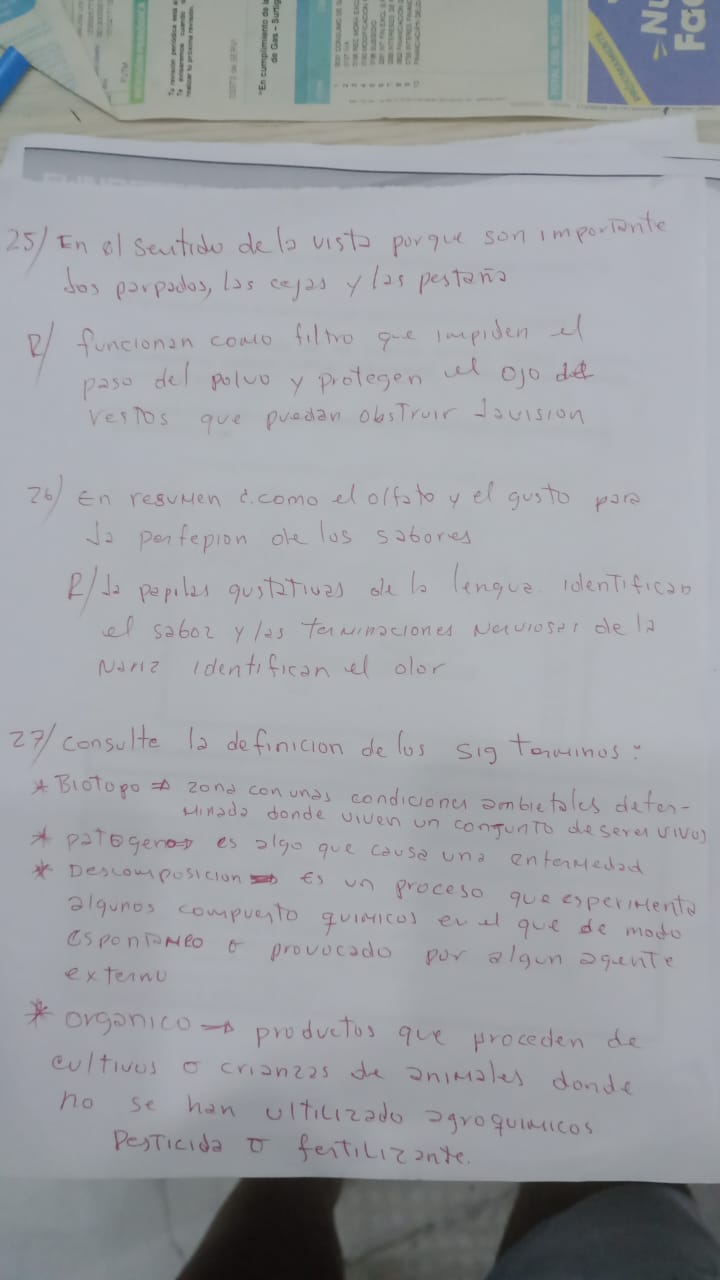 25/ En el sentido de la vista porque son importante
los parpados, las cejas y las pestaña
R/ funcionan como filtro que impiden el
paso del polvo y protegen el ojo de
restos que puedan obstruir la vision
26/ En resumen ¿. como el olfato y el gusto para
la perfepion de los sabores
R/ la papilas gustativas de la lengua identifican
el sabor y las terminaciones nerviosas de la
nariz identifican el olor
27/ consulte la definicion de los sig terminos:
* Biotopo ⇒ zona con unas condiciones ambietales deter-
minada donde viven un conjunto de seres vivos
* patogeno → es algo que causa una enfermedad
* Descomposicion → Es un proceso que esperimenta
algunos compuesto quimicos en el que de modo
espontaneo o provocado por algun agente
externo
* organico → productos que proceden de
cultivos o crianzas de animales donde
no se han ultilizado agroquimicos
pesticida o fertilizante.